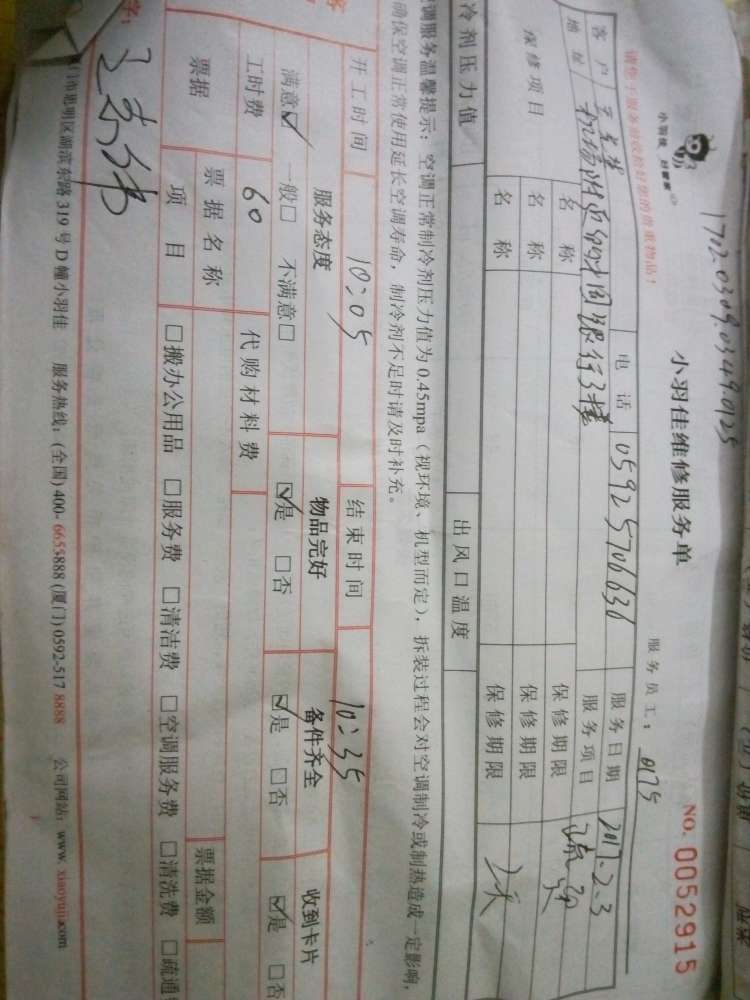 1702.0309.0349.0125
小羽佳 好管家
小羽佳维修服务单
服务员工: 0175
NO. 0052915
电话 05925706636 服务日期 2017.2.3
地址 中国银行3楼 服务项目 疏
保修项目 名称 保修期限
名称 保修期限
名称 保修期限 2天
冷剂压力值 出风口温度
调服务温馨提示:空调正常制冷剂压力值为0.45mpa(视环境、机型而定),拆装过程会对空调制冷或制热造成一定影响,
确保空调正常使用延长空调寿命,制冷剂不足时请及时补充。
开工时间 10:05 结束时间 10:35
服务态度 物品完好 备件齐全 收到卡片
满意☑ 一般□ 不满意□ ☑是 □否 ☑是 □否 ☑是 □否
工时费 60 代购材料费
票据 票据名称 票据金额
项目 □搬办公用品 □服务费 □清洁费 □空调服务费 □清洗费 □疏通
门市思明区湖滨东路319号D幢小羽佳 服务热线:(全国)400-6655888(厦门)0592-517 8888 公司网站:www.xiaoyujia.com